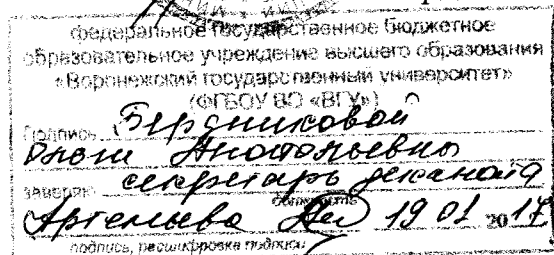 федеральное государственное бюджетное
образовательное учреждение высшего образования
«Воронежский государственный университет»
(ФГБОУ ВО «ВГУ»)
Подпись Бердниковой
Анатольевны
заверяю секретарь деканата
должность
Артемьева 19 01 2017
подпись, расшифровка подписи